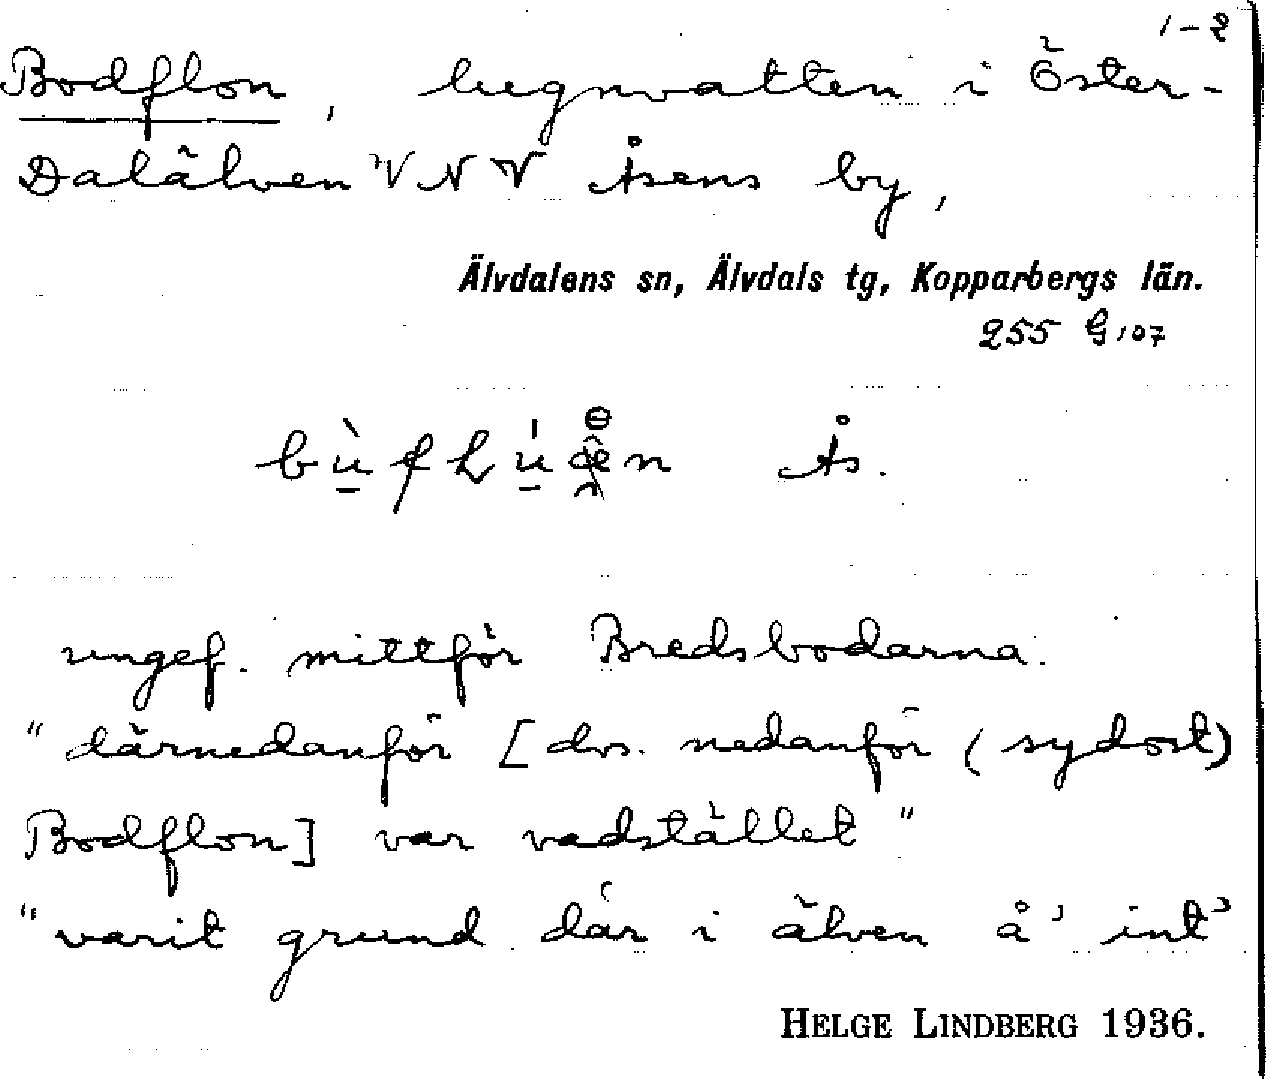 1-2
Bodflon, lugnvatten i Öster-
Dalälven VNV Åsens by,
Älvdalens sn, Älvdals tg, Kopparbergs län.
255 G 107
Ås.
ungef. mittför Bredsbodarna.
"därnedanför [dvs. nedanför (sydost)
Bodflon] var vadstället"
"varit grund där i älven å' int'
HELGE LINDBERG 1936.